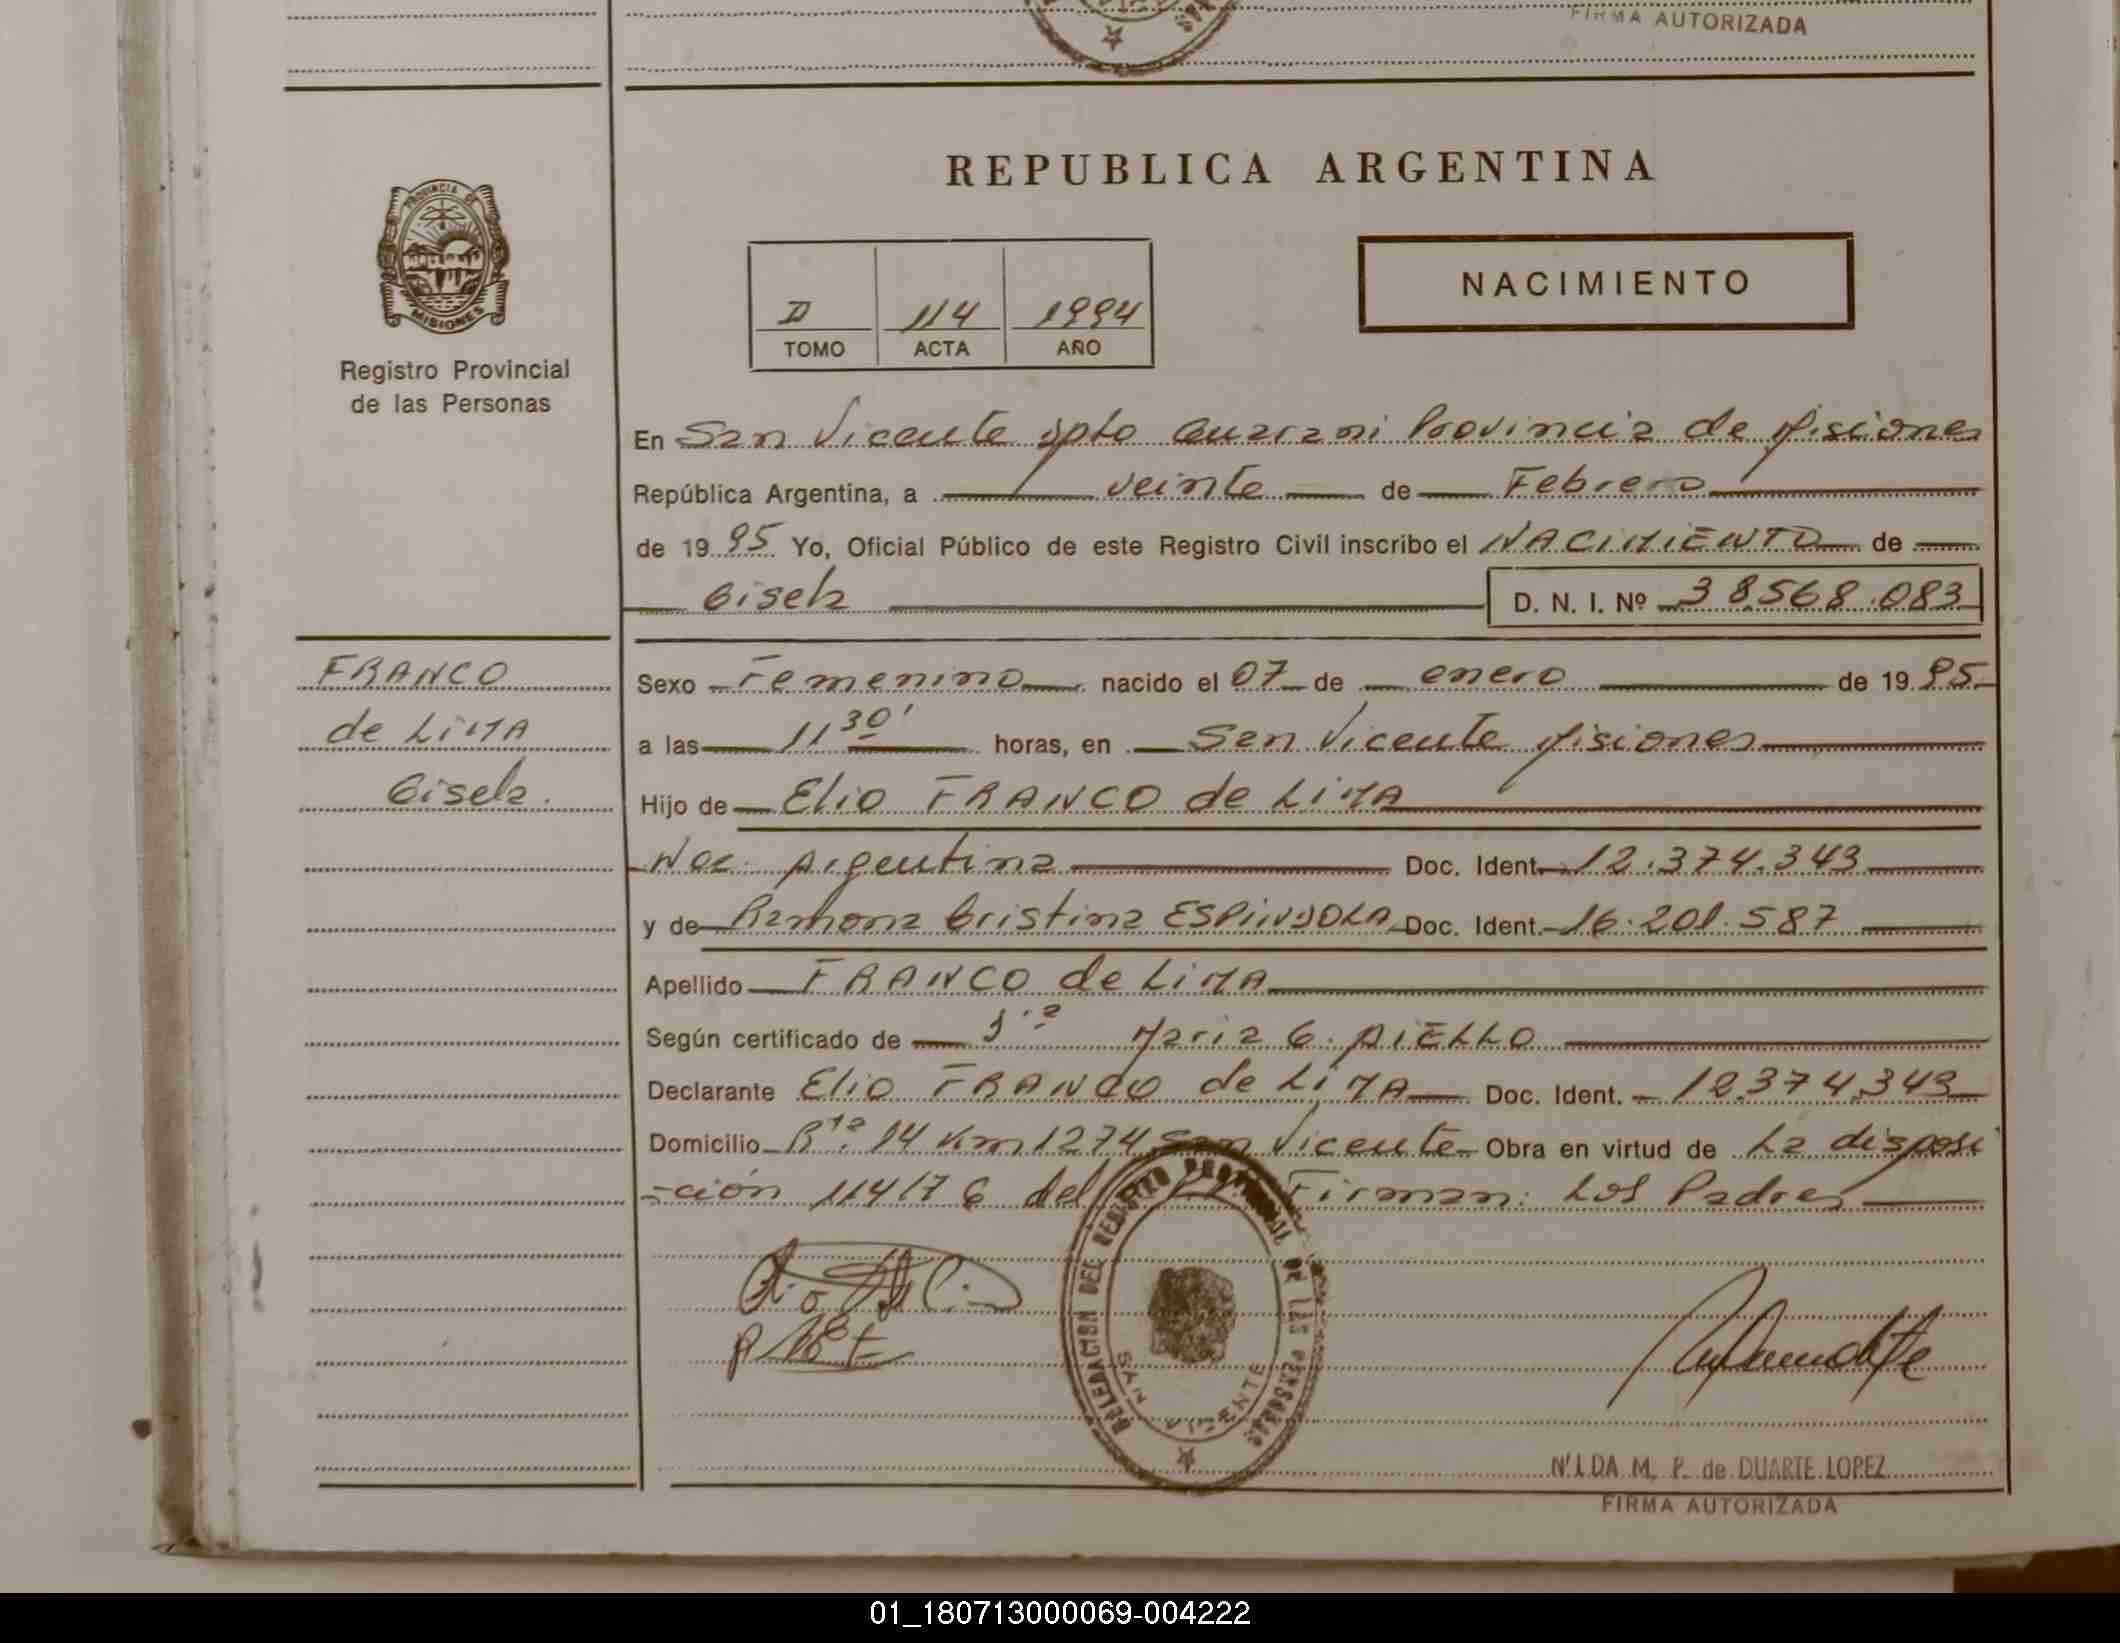 FIRMA AUTORIZADA
PROVINCIA DE
MISIONES
Registro Provincial
de las Personas
REPUBLICA ARGENTINA
NACIMIENTO
D 114 1994
TOMO ACTA AÑO
En San Vicente dpto Guarani Provincia de Misiones
República Argentina, a veinte de Febrero
de 19 95 Yo, Oficial Público de este Registro Civil inscribo el NACIMIENTO de
Gisela D. N. I. Nº 38.568.083
FRANCO
de LiMA
Gisela.
Sexo Femenino nacido el 07 de enero de 19 95
a las 11 30' horas, en San Vicente Misiones
Hijo de Elio FRANCO de LiMA
Nac. Argentina Doc. Ident. 12.374.343
y de Ramona Cristina ESPINDOLA Doc. Ident. 16.201.587
Apellido FRANCO de LiMA
Según certificado de Maria G. AiELLO
Declarante Elio FRANCO de LiMA Doc. Ident. 12.374.343
Domicilio Rta. 14 Km 1274 San Vicente Obra en virtud de La disposi
-ción 114/76 del Firman: Los Padres
DELEGACION DEL REGISTRO PROVINCIAL DE LAS PERSONAS
SAN VICENTE
NILDA M. P. de DUARTE LOPEZ
FIRMA AUTORIZADA
01_180713000069-004222